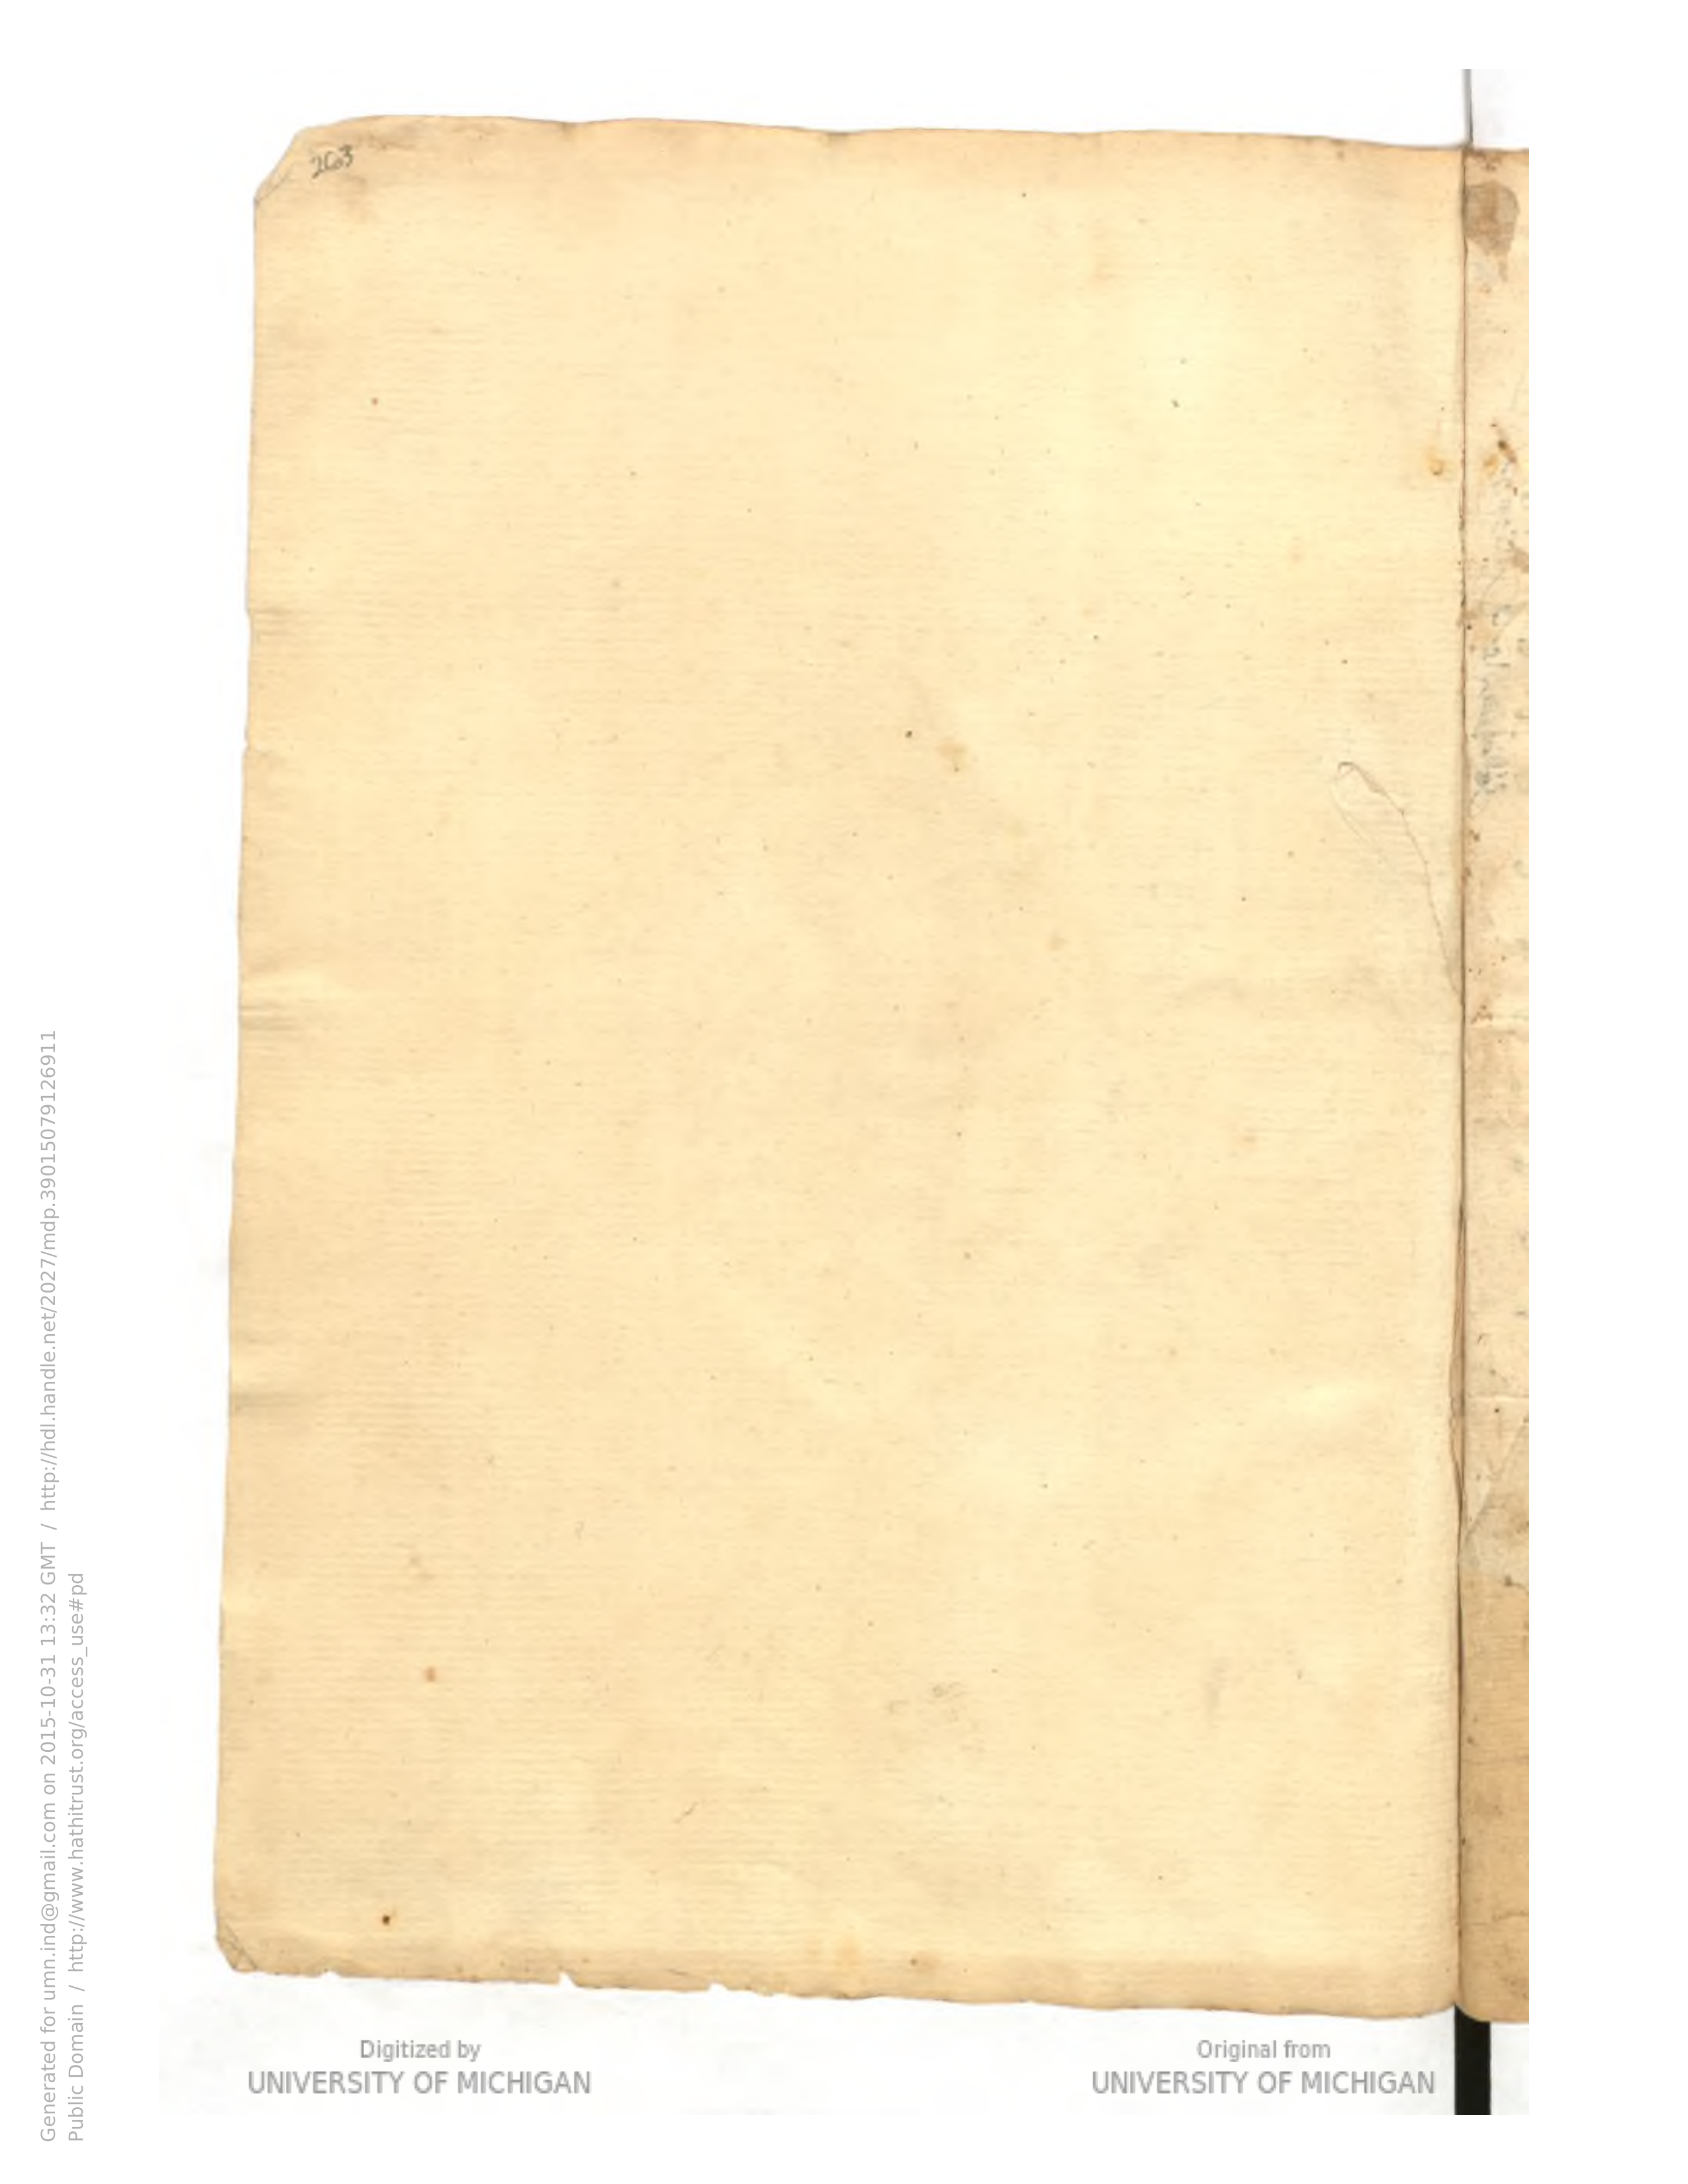 203
Generated for umn.ind@gmail.com on 2015-10-31 13:32 GMT / http://hdl.handle.net/2027/mdp.39015079126911
Public Domain / http://www.hathitrust.org/access_use#pd
Digitized by
UNIVERSITY OF MICHIGAN
Original from
UNIVERSITY OF MICHIGAN